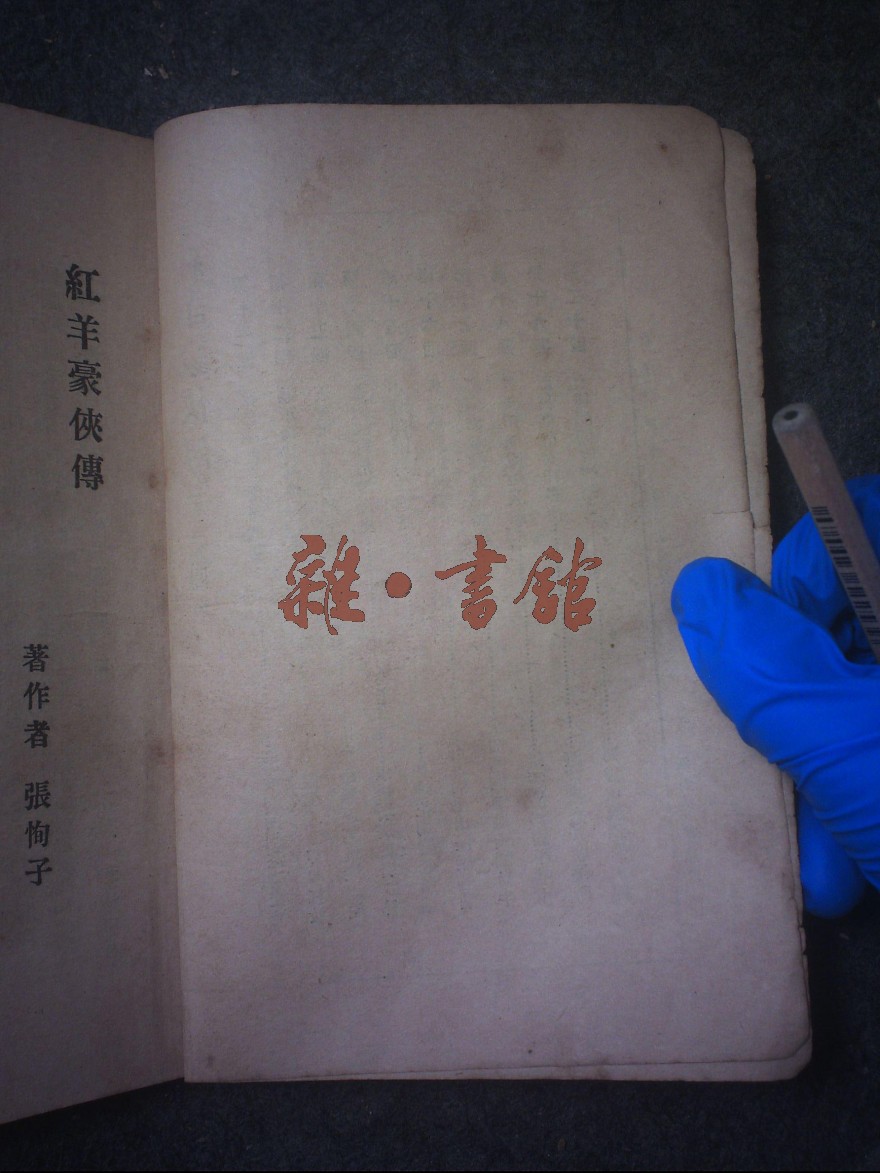 紅羊豪俠傳
著作者 張恂子
雜·書館